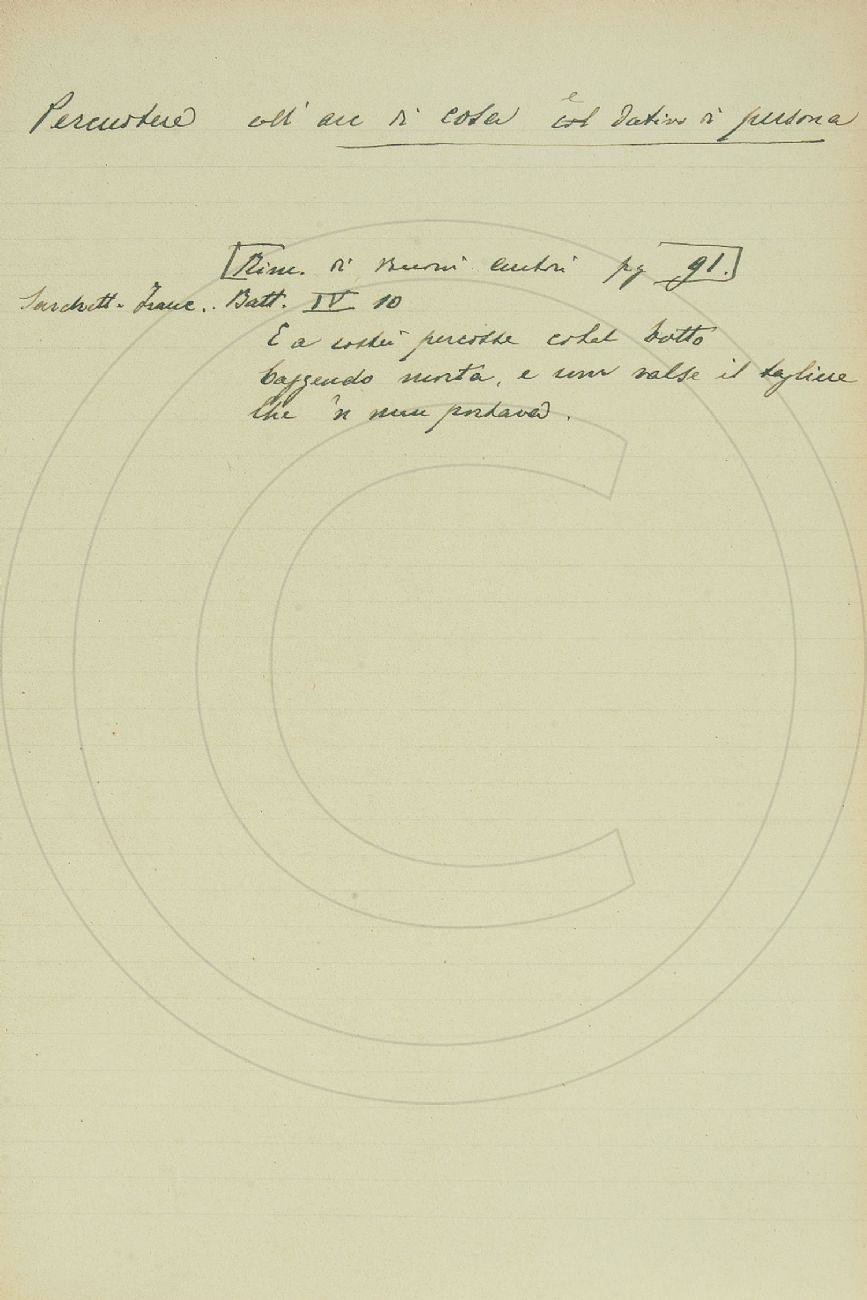 Percuotere coll' acc di cosa e col dativo di persona
[Rim. di buoni autori pg 91.]
Sacchett. Franc. Batt. IV 10
E a costei percosse cotal botto
Caggendo morta, e non valse il tagliere
Che 'n man portava.